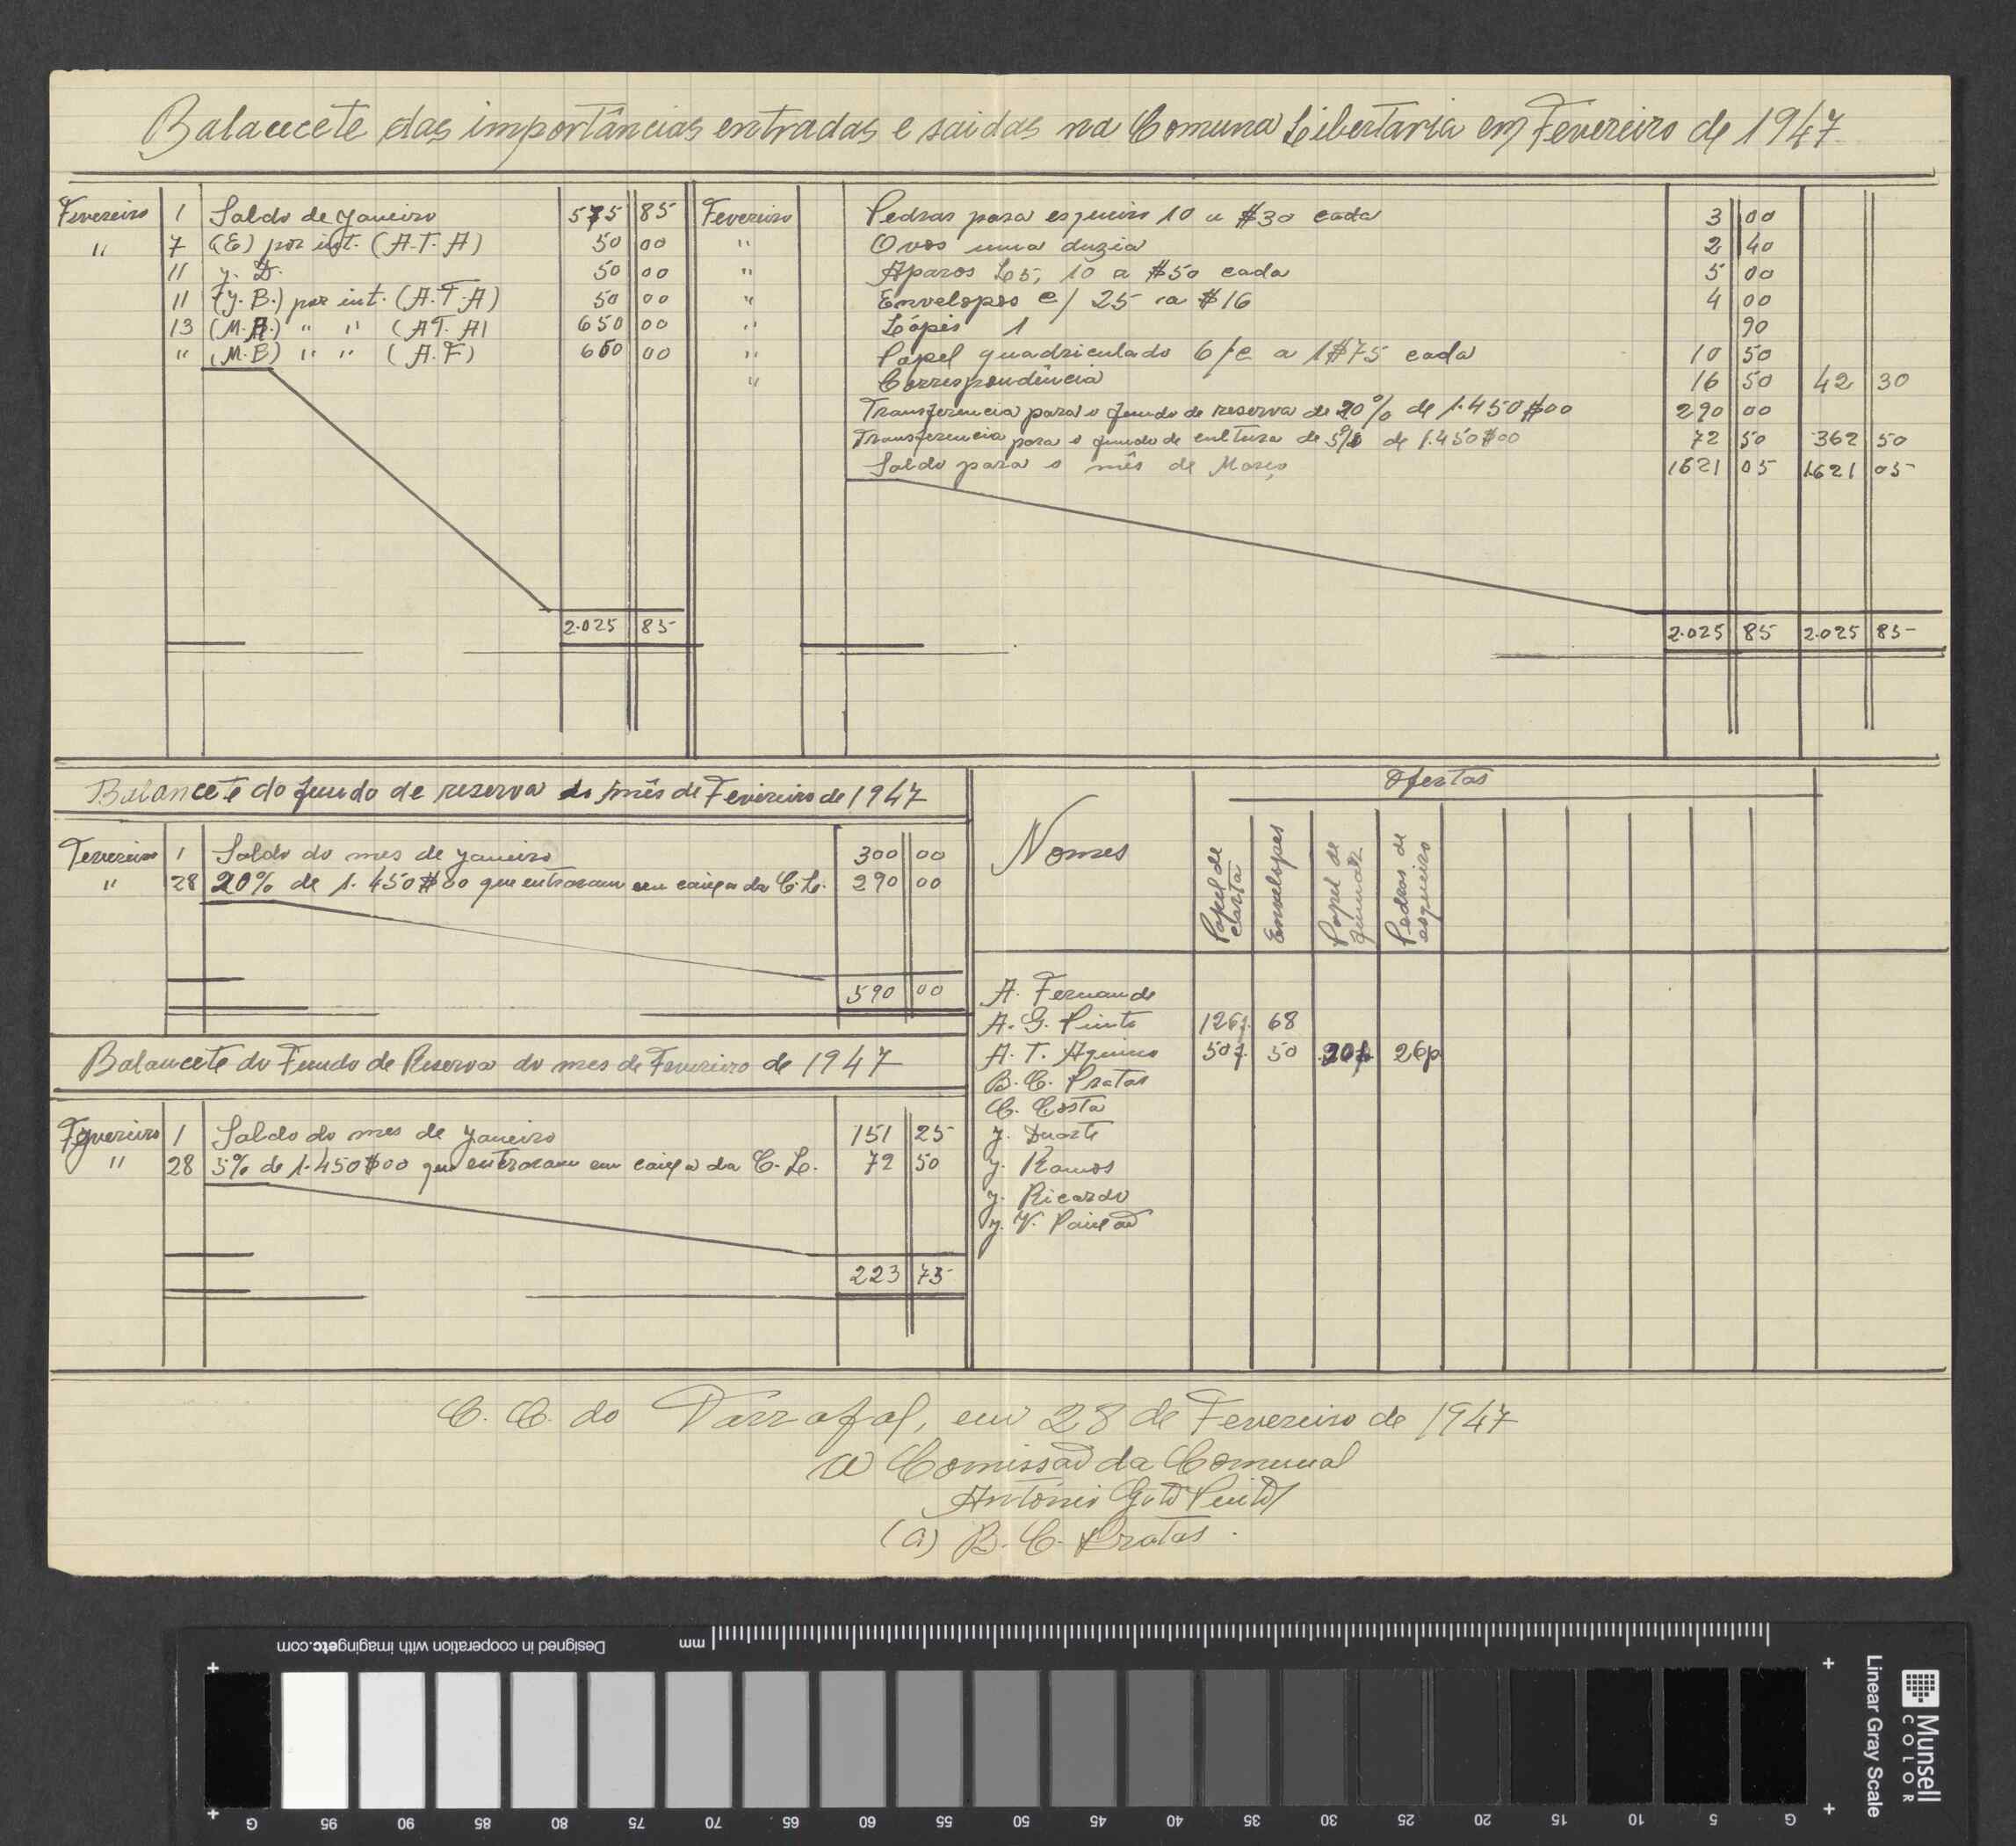 Balancete das importâncias entradas e saidas na Comuna Libertaria em Fevereiro de 1947
Fevereiro 1 Saldo de Janeiro 575 85
" 7 (E) por int. (A.T.A) 50 00
11 J. D. 50 00
11 (J. B.) por int. (A.T.A) 50 00
13 (M.A.) " " (A.T.A) 650 00
" (M.B) " " (A.F) 650 00
2.025 85
Fevereiro Pedras para esqueiro 10 a $30 cada 3 00
" Ovos uma duzia 2 40
" Aparos L5, 10 a $50 cada 5 00
" Envelopes c/ 25 a $16 4 00
" Lápis 1 90
" Papel quadriculado 6/c a 1$75 cada 10 50
" Correspondência 16 50 42 30
Transferencia para o fundo de reserva de 20% de 1.450$00 290 00
Transferencia para o fundo de cultura de 5% de 1.450$00 72 50 362 50
Saldo para o mês de Março 1621 05 1.621 05
2.025 85 2.025 85
Balancete do fundo de reserva do mês de Fevereiro de 1947
Fevereiro 1 Saldo do mes de Janeiro 300 00
" 28 20% de 1.450$00 que entraram em caixa da C.L. 290 00
590 00
Balancete do Fundo de Reserva do mes de Fevereiro de 1947
Fevereiro 1 Saldo do mes de Janeiro 151 25
" 28 5% de 1.450$00 que entraram em caixa da C.L. 72 50
223 75
Nomes
Ofertas
Papel de carta
Envelopes
Papel de
Pedras de esqueiro
A. Fernande
A. G. Pinto 126f. 68
A. T. Aquino 50f. 50 20f. 26p
B. C. Pratas
C. Costa
J. Duarte
J. Ramos
J. Ricardo
J. V. Paixão
C. C. do Tarrafal, em 28 de Fevereiro de 1947
A Comissão da Comunal
António Gato Pinto
(a) B. C. Pratas.
Designed in cooperation with imagingetc.com
mm
G 95 90 85 80 75 70 65 60 55 50 45 40 35 30 25 20 15 10 5 G
Linear Gray Scale
Munsell
COLOR